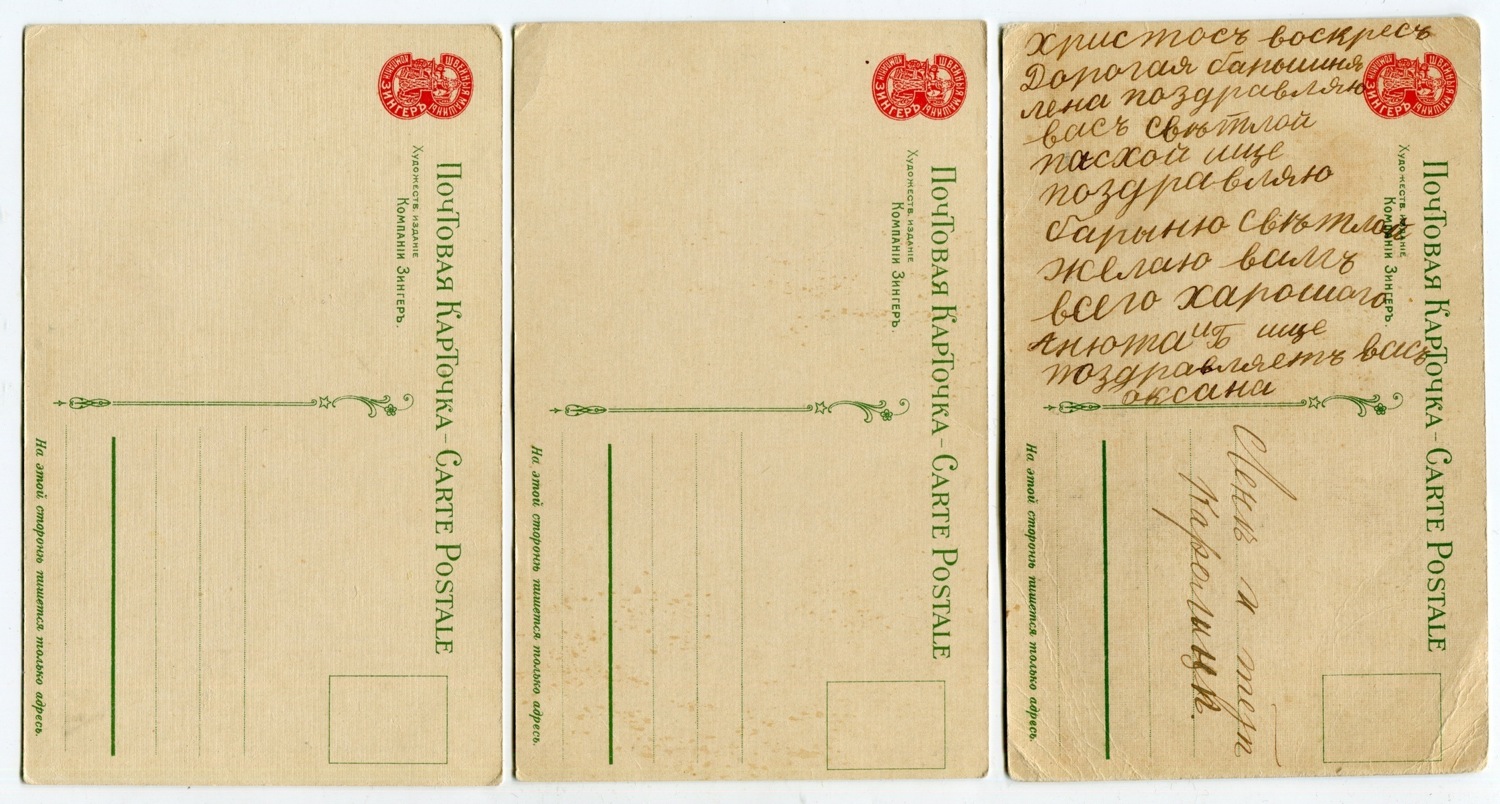 ШВЕЙНЫЯ МАШИНЫ
КОМПАНІИ ЗИНГЕРЪ
Почтовая Карточка – Carte Postale
Художеств. издание
Компаніи Зингеръ.
На этой сторонѣ пишется только адресъ.
ШВЕЙНЫЯ МАШИНЫ
КОМПАНІИ ЗИНГЕРЪ
Почтовая Карточка – Carte Postale
Художеств. издание
Компаніи Зингеръ.
На этой сторонѣ пишется только адресъ.
ШВЕЙНЫЯ МАШИНЫ
КОМПАНІИ ЗИНГЕРЪ
Почтовая Карточка – Carte Postale
Художеств. издание
Компаніи Зингеръ.
Христосъ воскресъ
Дорогая барышиня
лена поздравляю
васъ свѣтлой
пасхой ище
поздравляю
барыню свѣтлой
желаю вамъ
всего харошаго
Анюта Б ище
поздравляетъ васъ
оксана
На этой сторонѣ пишется только адресъ.
Ленѣ и